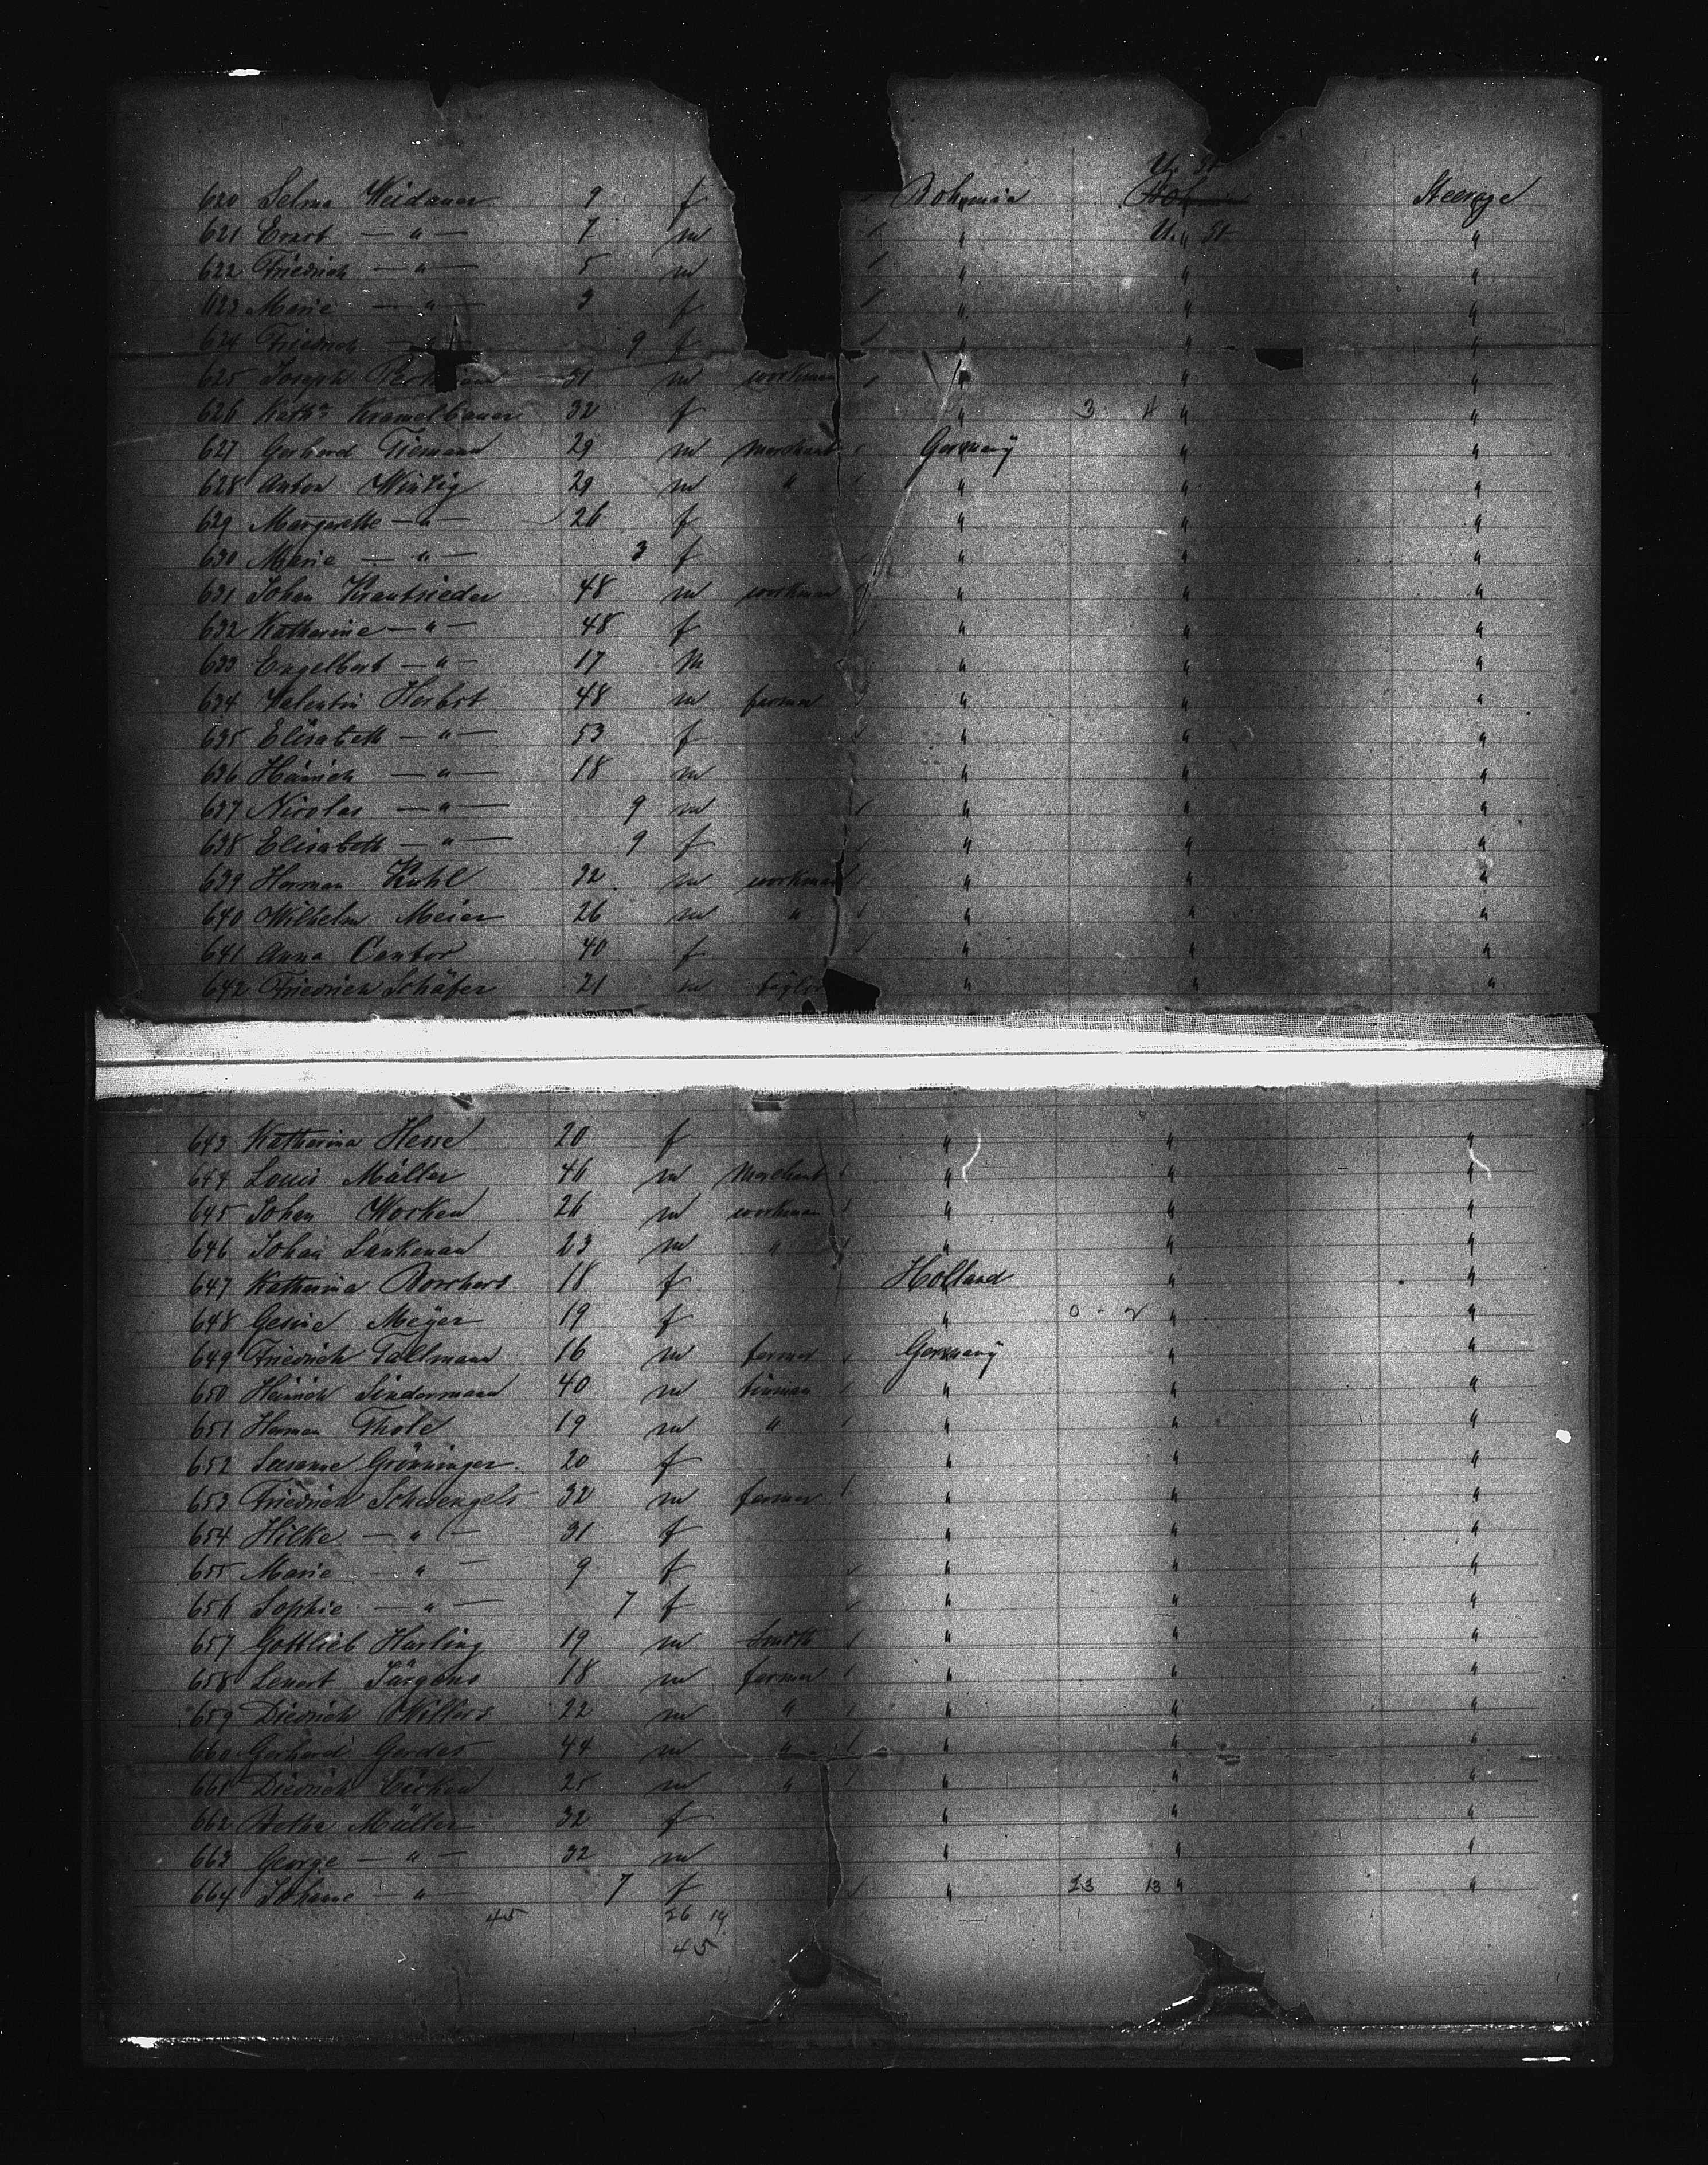 U. St
620 Selma Weidauer 9 f Bohemia Steerage
621 Ernst — " — 7 m " U. St "
622 Friedrich — " — 5 m " " "
623 Marie — " — 3 f " " "
624 Friedrich — " — 9 f " " "
625 Joseph 31 m workman " " "
626 Kath. Kramelbauer 32 f " 3 4 " "
627 Gerhard Tiemann 29 m merchant Germany " "
628 Anton Wintig 29 m " " " "
629 Margarethe — " — 26 f " " "
630 Marie — " — 3 f " " "
631 Johan Krautrieder 48 m workman " " "
632 Katharine — " — 48 f " " "
633 Engelbert — " — 17 m " " "
634 Valentin Herbst 48 m farmer " " "
635 Elisabeth — " — 53 f " " "
636 Heinrich — " — 18 m " " "
637 Nicolas — " — 9 m " " "
638 Elisabeth — " — 9 f " " "
639 Herman Kuhl 32 m workman " " "
640 Wilhelm Meier 26 m " " " "
641 Anna Cantor 40 f " " "
642 Friedrich Schäfer 21 m " " "
643 Katharina Hesse 20 f " " "
644 Louis Müller 46 m Merchant " " "
645 Johan Worken 26 m workman " " "
646 Johan Lankenau 23 m " " " "
647 Katharina Borchers 18 f Holland " "
648 Gesine Meÿer 19 f " 0 - 2 " "
649 Friedrich Tallmann 16 m farmer Germanÿ " "
650 Heinrich Lindermann 40 m " " "
651 Herman Thole 19 m " " " "
652 Susanne Grönninger 20 f " " "
653 Friedrich Schwengels 32 m farmer " " "
654 Hilke — " — 31 f " " "
655 Marie — " — 9 f " " "
656 Sophie — " — 7 f " " "
657 Gottlieb Harling 19 m Smith " " "
658 Lenert Jürgens 18 m farmer " " "
659 Diedrich Willers 22 m " " " "
660 Gerhard Gerdes 44 m " " " "
661 Diedrich Eicken 25 m " " " "
662 Betha Müller 32 f " " "
663 George — " — 32 m " " "
664 Johane — " — 7 f " 23 13 " "
45 26 19
45